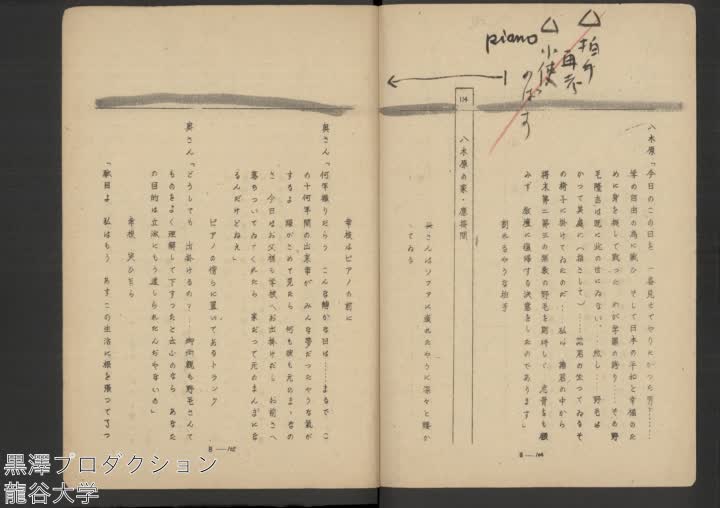 piano
小使
のばす
八木原「今日のこの日を 一番見せてやりたかった男は……
学の自由の為に戦ひ そして日本の平和と幸福のた
めに身を挺して戦った わが学園の誇り……その野
毛隆吉は既に此の世にゐない 然し 野毛は
かつて其處に(指さして)……諸君の坐ってゐるそ
の椅子に掛けてゐたのだ…私は 諸君の中から
将来第二第三の無数の野毛を期待しく 老骨をも顧
みず 教壇に復帰する決意をしたのであります」
割れるやうな拍手
114
八木原の家・應接間
奥さんはソファに疲れたやうに深々と腰か
てゐる
幸枝はピアノの前に
奥さん「何年振りだらう こんな静かな日は……まるで こ
の十何年間の出来事が みんな夢だったやうな氣が
するよ 眼がさめて見たら 何も彼も元のまゝなの
さ 今日はお父様も学校へお出掛けだし お前さへ
落ちついてゐてくれたら 家だって元のまんまにな
るんだけどねえ」
ピアノの傍らに置いてあるトランク
奥さん「どうしても 出掛けるの?……御両親も野毛さんて
ものをよく理解して下すったと云ふのなら あなた
の目的は立派にもう達しられたんだやないの」
幸枝 笑ひ乍ら
「駄目よ 私はもう あすこの生活に根を張って了つ
B—105
B—104
黒澤プロダクション
龍谷大学